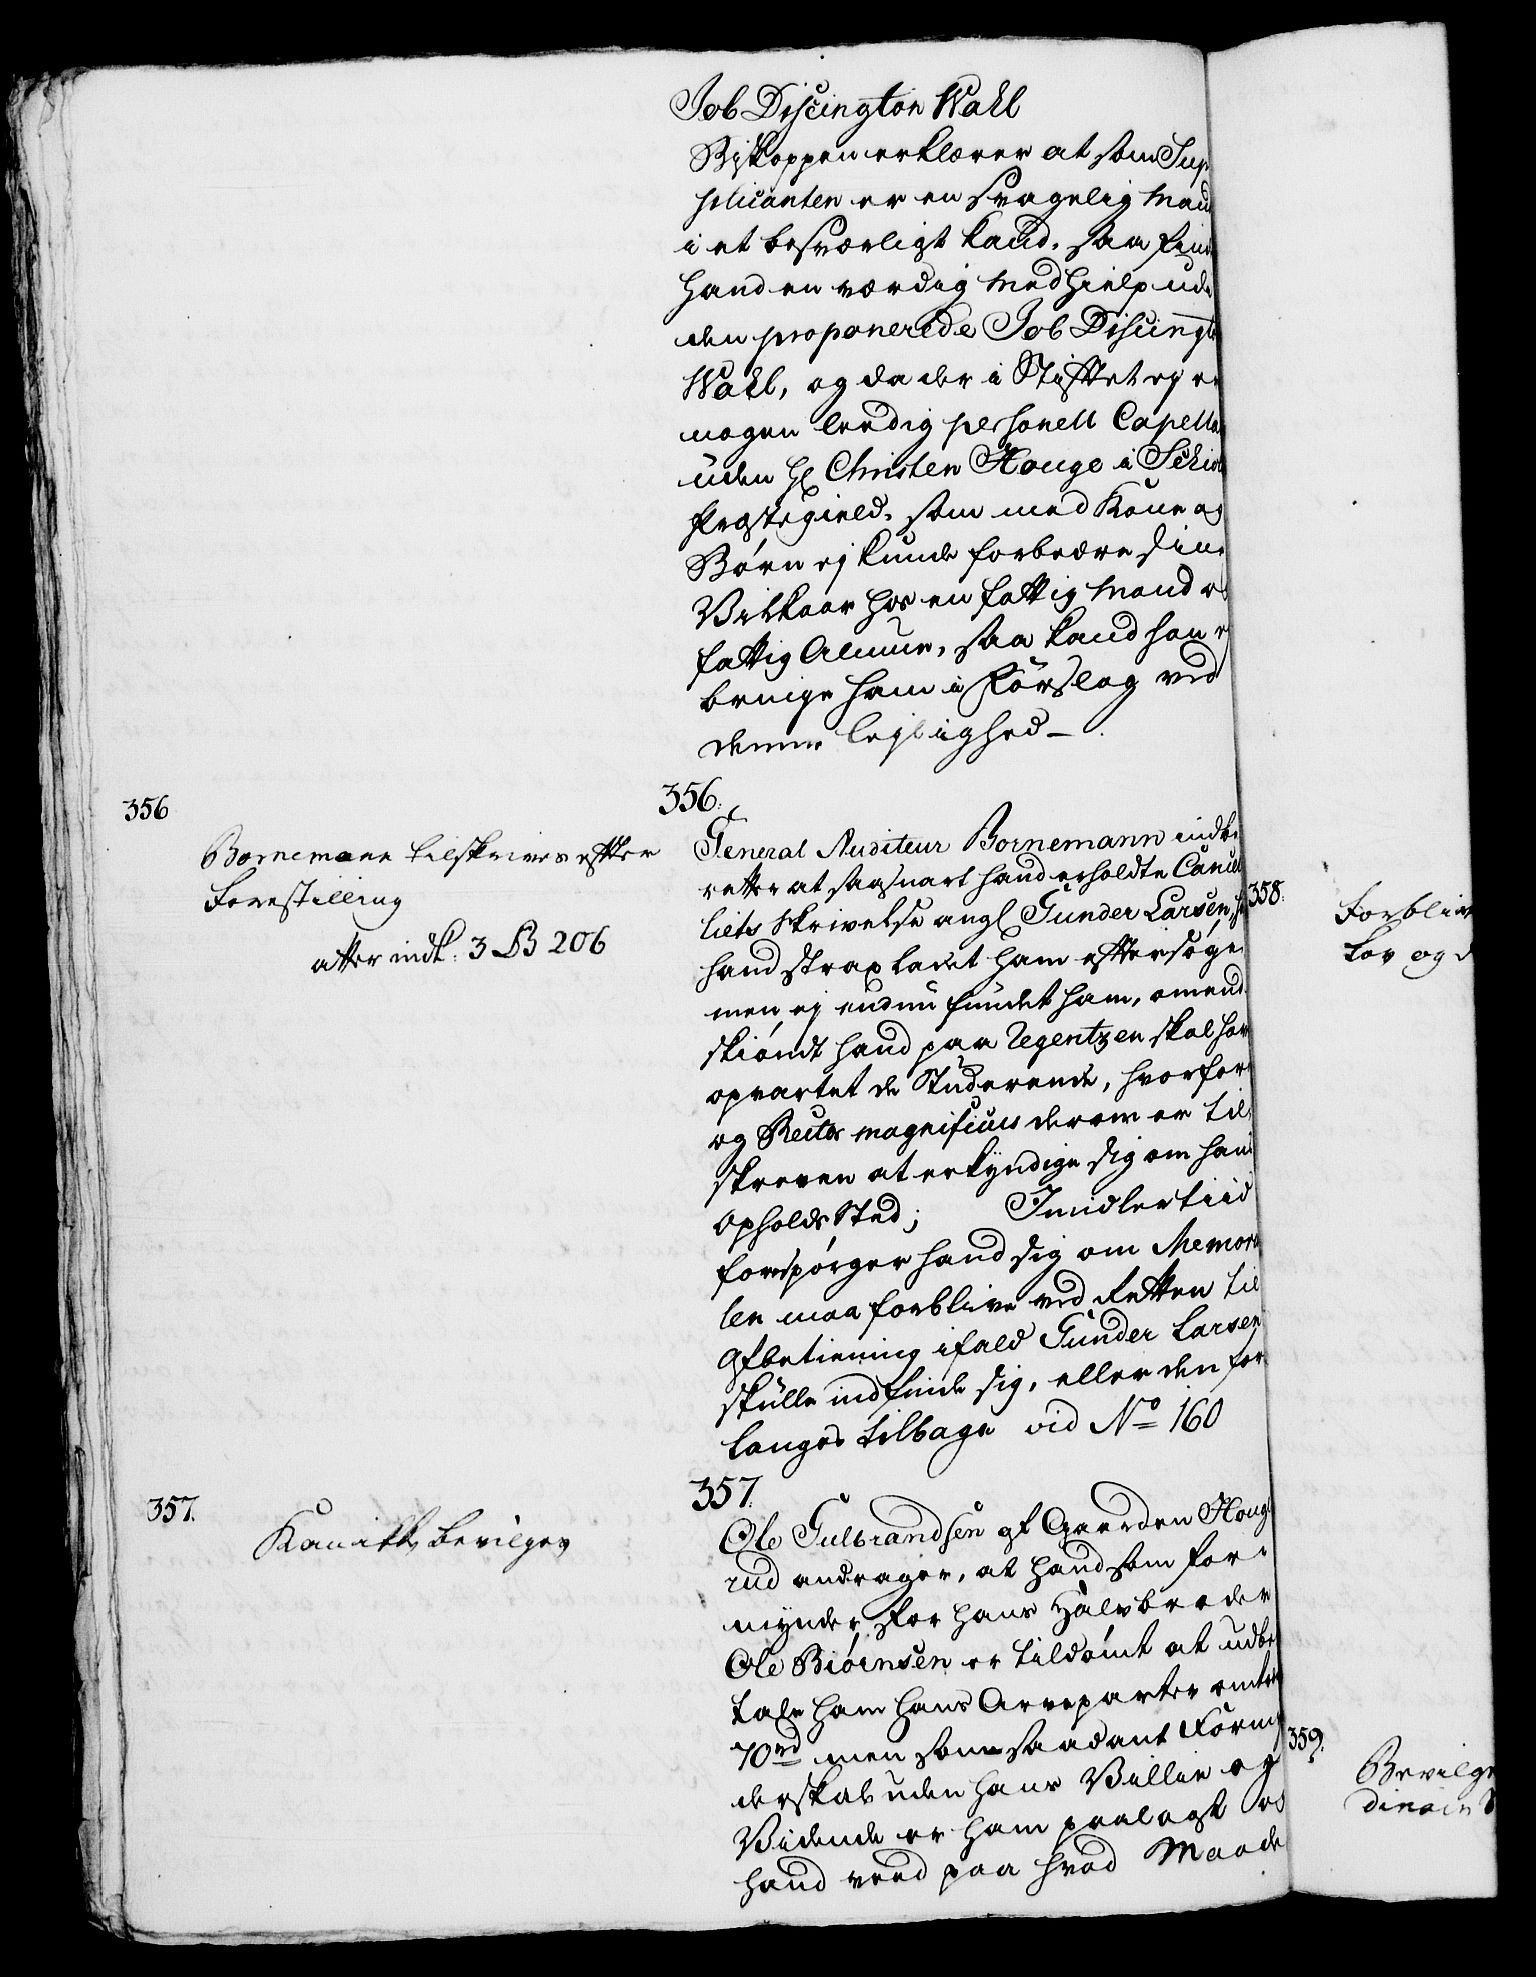 Job Discington Wahl
Biskoppen erklærer at som Sup
plicanten er en svagelig Mand
i et besværligt Kald, saa find
hand en værdig Medhielp udi
den proponerede Job Discingt
Wahl, og da der i Stiftet ej er
nogen leedig personell Capellan
uden Hr Christen Houge i Schie
Præstegield, som med Kone og
Børn ej kunde forbedre sine
Vilkaar hos en fattig Mand og
fattig Almue, saa kand han ej
bringe ham i Forslag ved
denne lejlighed
356
Bornemann tilskrives efter
Forestilling
atter indk: 3 B 206
356.
General Auditeur Bornemann indbe
retter at saasnart hand erholdte Cancel
liets Skrivelse angl Gunder Larsen, h
hand strax ladet ham eftersøge
men ej endnu fundet ham, omend
skiøndt hand paa Regentzen skal hav
opvartet de Studerende, hvorfor
og Rector magnificus derom er til
skreven at erkyndige sig om hans
Opholds Sted; Imidlertiid
forespørger hand sig om Memoria
len maa forblive ved Retten til
Afbetiening ifald Gunder Larsen
skulle indfinde sig, eller den for
langes tilbage vid No 160
357.
Kand ikke bevilges
357.
Ole Gulbrandsen af Gaarden Houge
rud andrager, at hand som for
mynder for hans Halvbroder
Ole Biørnsen er tildømt at udbe
tale ham hans Arveparter omtre
70 rd men som saadant Formyn
derskab uden hans Villie og
Vidende er ham paalagt og
hand veed paa hvad Maade
358.
Forbliv
Lov og d
359.
Bevilge